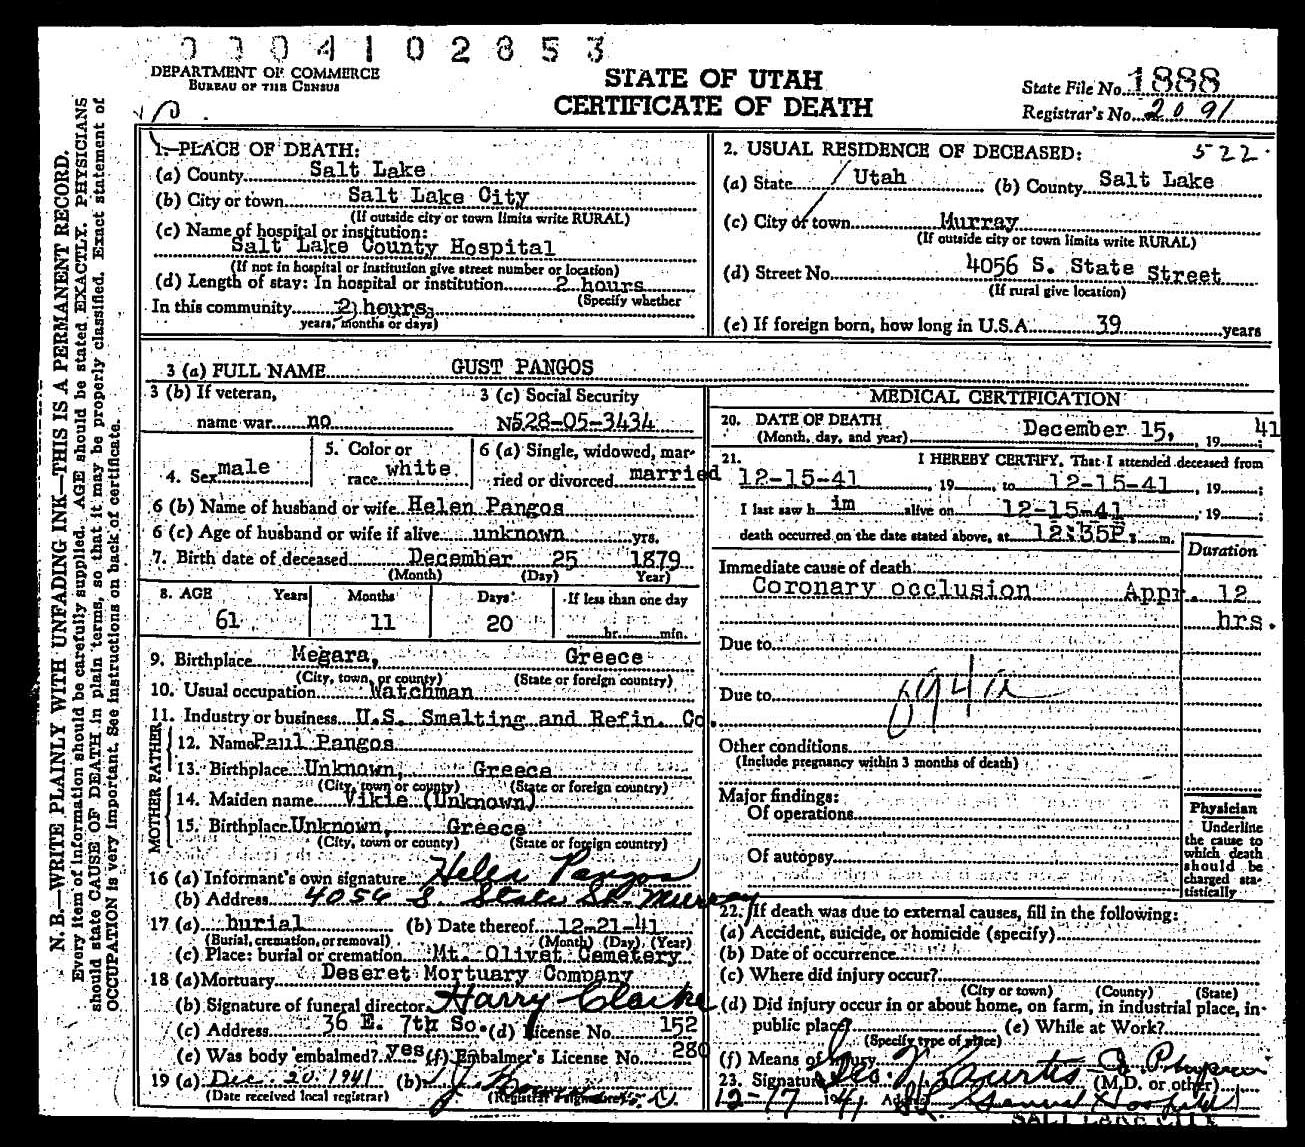 0004102853
DEPARTMENT OF COMMERCE
BUREAU OF THE CENSUS
STATE OF UTAH
CERTIFICATE OF DEATH
State File No. 1888
Registrar's No. 2091
N. B.—WRITE PLAINLY WITH UNFADING INK—THIS IS A PERMANENT RECORD.
Every item of information should be carefully supplied. AGE should be stated EXACTLY. PHYSICIANS
should state CAUSE OF DEATH in plain terms, so that it may be properly classified. Exact statement of
OCCUPATION is very important. See instructions on back of certificate.
1. PLACE OF DEATH:
(a) County Salt Lake
(b) City or town Salt Lake City
(If outside city or town limits write RURAL)
(c) Name of hospital or institution:
Salt Lake County Hospital
(If not in hospital or institution give street number or location)
(d) Length of stay: In hospital or institution 2 hours
(Specify whether
In this community 2 hours
years, months or days)
2. USUAL RESIDENCE OF DECEASED: 522
(a) State Utah (b) County Salt Lake
(c) City or town Murray
(If outside city or town limits write RURAL)
(d) Street No. 4056 S. State Street
(If rural give location)
(e) If foreign born, how long in U.S.A. 39 years
3 (a) FULL NAME GUST PANGOS
3 (b) If veteran,
name war no
3 (c) Social Security
No 528-05-3434
4. Sex male
5. Color or
race white
6 (a) Single, widowed, mar-
ried or divorced married
6 (b) Name of husband or wife Helen Pangos
6 (c) Age of husband or wife if alive unknown yrs.
7. Birth date of deceased December 25 1879
(Month) (Day) Year)
8. AGE Years Months Days If less than one day
61 11 20 hr. min.
9. Birthplace Megara, Greece
(City, town, or county) (State or foreign country)
10. Usual occupation Watchman
11. Industry or business U.S. Smelting and Refin. Co.
FATHER
12. Name Paul Pangos
13. Birthplace Unknown, Greece
(City, town or county) (State or foreign country)
MOTHER
14. Maiden name Vikie (Unknown)
15. Birthplace Unknown, Greece
(City, town or county) (State or foreign country)
16 (a) Informant's own signature Helen Pangos
(b) Address 4056 S. State St. Murray
17 (a) burial (b) Date thereof 12-21-41
(Burial, cremation, or removal) (Month) (Day) (Year)
(c) Place: burial or cremation Mt. Olivet Cemetery
18 (a) Mortuary Deseret Mortuary Company
(b) Signature of funeral director Harry Clarke
(c) Address 36 E. 7th So. (d) License No. 152
(e) Was body embalmed? yes (f) Embalmer's License No. 280
19 (a) Dec. 20. 1941 (b)
(Date received local registrar) (Registrar's signature)
MEDICAL CERTIFICATION
20. DATE OF DEATH
(Month, day, and year) December 15, 19 41
21. I HEREBY CERTIFY, That I attended deceased from
12-15-41, 19 , to 12-15-41, 19 ;
I last saw h im alive on 12-15-41, 19 ;
death occurred on the date stated above, at 12:35P. m.
Duration
Immediate cause of death:
Coronary occlusion Appr. 12
hrs.
Due to
Due to 094a
Other conditions
(Include pregnancy within 3 months of death)
Major findings:
Of operations
Of autopsy
Physician
Underline
the cause to
which death
should be
charged sta-
tistically
22. If death was due to external causes, fill in the following:
(a) Accident, suicide, or homicide (specify)
(b) Date of occurrence
(c) Where did injury occur?
(City or town) (County) (State)
(d) Did injury occur in or about home, on farm, in industrial place, in
public place? (e) While at Work?
(Specify type of place)
(f) Means of injury
23. Signature Geo Curtis
(M.D. or other)
12-17 1941 Address S L General Hospital
SALT LAKE CITY